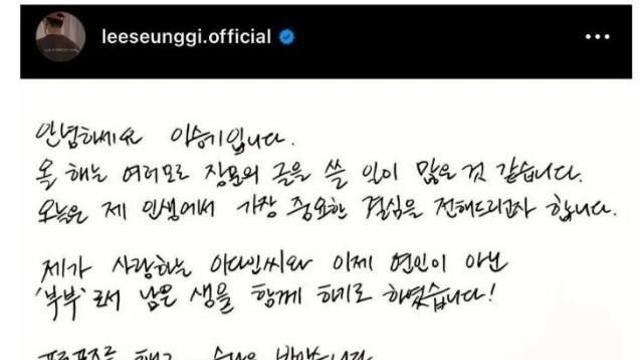 leeseunggi.official
안녕하세요 이승기입니다.
올 해는 여러모로 장문의 글을 쓸 일이 많은 것 같습니다.
오늘은 제 인생에서 가장 중요한 결심을 전해드리고자 합니다.
제가 사랑하는 이다인씨와 이제 연인이 아닌
'부부'로서 남은 생을 함께 하기로 하였습니다!